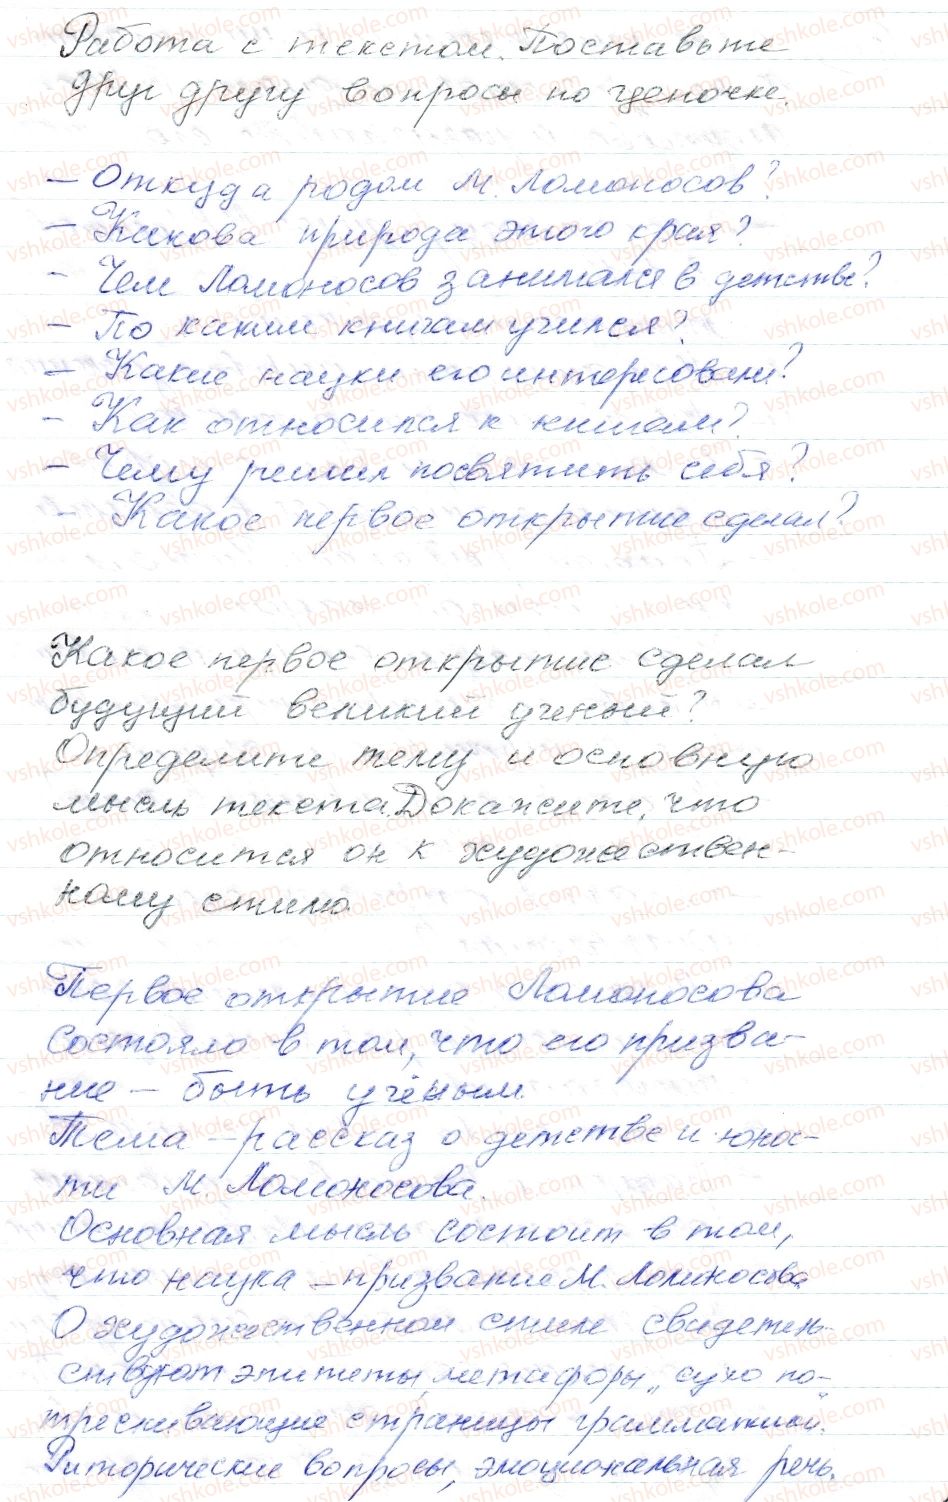 Работа с текстом. Поставьте
друг другу вопросы по цепочке.
– Откуда родом М. Ломоносов?
– Какова природа этого края?
– Чем Ломоносов занимался в детстве?
– По каким книгам учился?
– Какие науки его интересовали?
– Как относился к книгам?
– Чему решил посвятить себя?
– Какое первое открытие сделал?
Какое первое открытие сделал
будущий великий ученый?
Определите тему и основную
мысль текста. Докажите, что
относится он к художествен-
ному стилю
Первое открытие Ломоносова
состояло в том, что его призва-
ние – быть учёным.
Тема – рассказ о детстве и юнос-
ти М. Ломоносова.
Основная мысль состоит в том,
что наука – призвание М. Ломоносова
О художественном стиле свидетель-
ствуют эпитеты, метафоры „сухо по-
трескивающие страницы грамматики".
Риторические вопросы, эмоциональная речь.